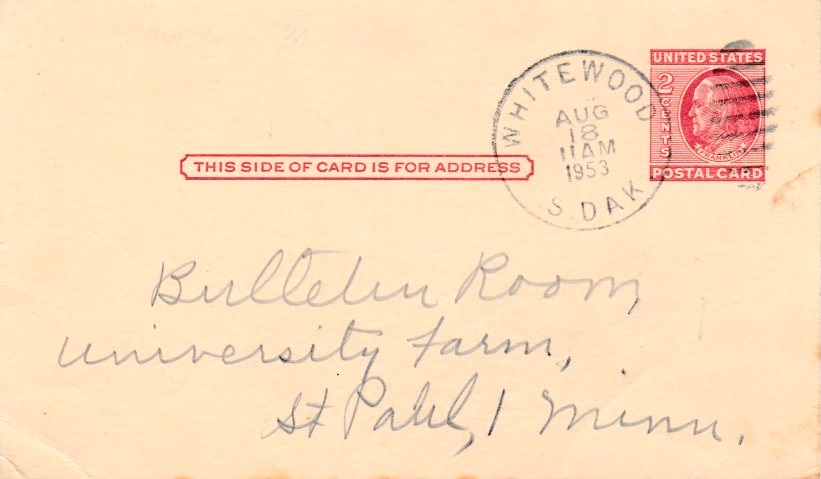 UNITED STATES
2 CENTS
FRANKLIN
POSTAL CARD
WHITEWOOD
AUG
18
11 AM
1953
S. DAK
THIS SIDE OF CARD IS FOR ADDRESS
Bulletin Room,
University Farm,
St Paul, 1 Minn.